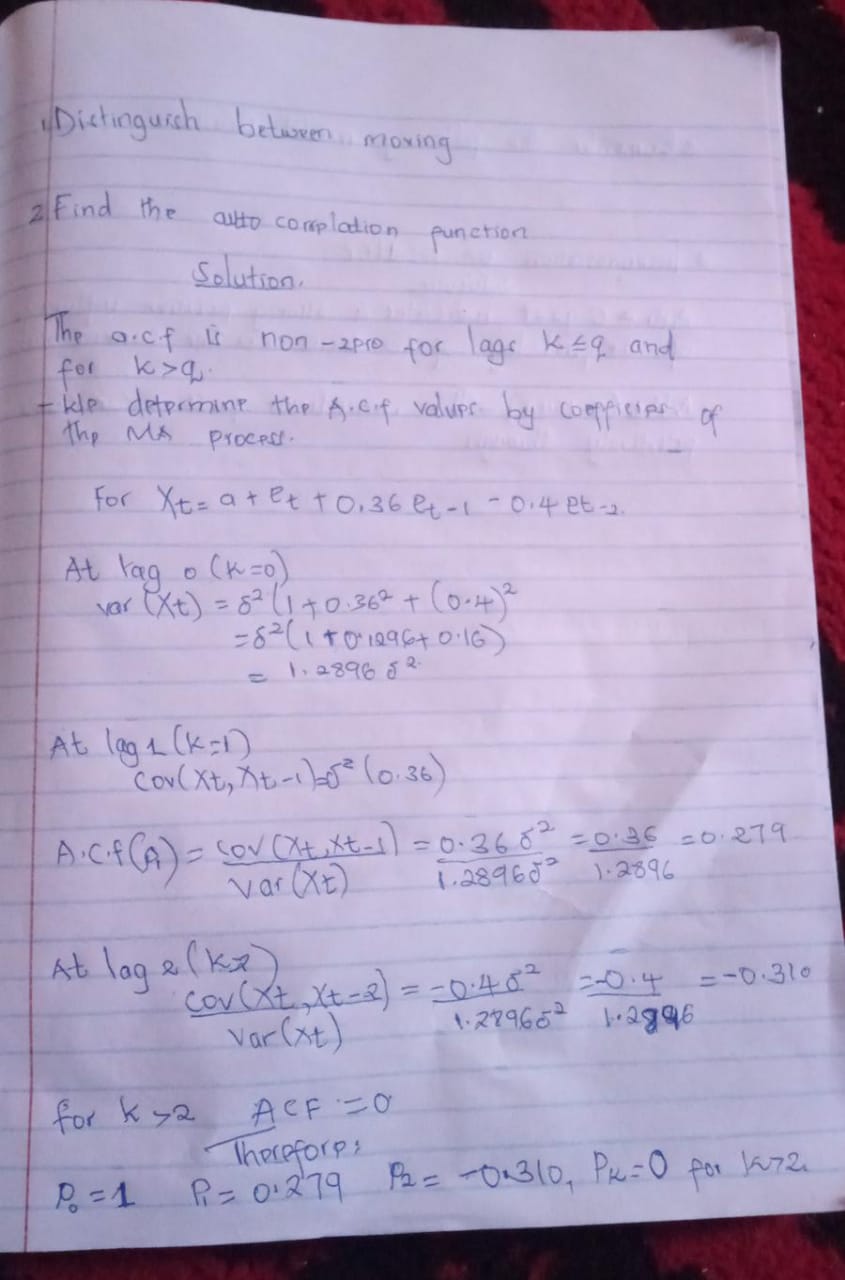 1, Distinguish between moving
2. Find the auto correlation function
Solution.
The a.c.f is non-zero for lags k ≤ q and
for k > q.
- We determine the A.C.f values by coefficies of
the MA process.
For Xt = a + et + 0.36 et-1 - 0.4 et-2.
At lag 0 (k=0)
var (Xt) = δ² (1 + 0.36² + (0.4)²
= δ² (1 + 0.1296 + 0.16)
= 1.2896 δ².
At lag 1 (k=1)
Cov(Xt, Xt-1) = δ² (0.36)
A.C.f (ρ1) = Cov (Xt, Xt-1) / Var (Xt) = 0.36 δ² / 1.2896 δ² = 0.36 / 1.2896 = 0.279
At lag 2 (k=2)
Cov(Xt, Xt-2) / Var (Xt) = -0.4 δ² / 1.2896 δ² = -0.4 / 1.2896 = -0.310
for k > 2 ACF = 0
Therefore;
P0 = 1 P1 = 0.279 P2 = -0.310, PK = 0 for k > 2